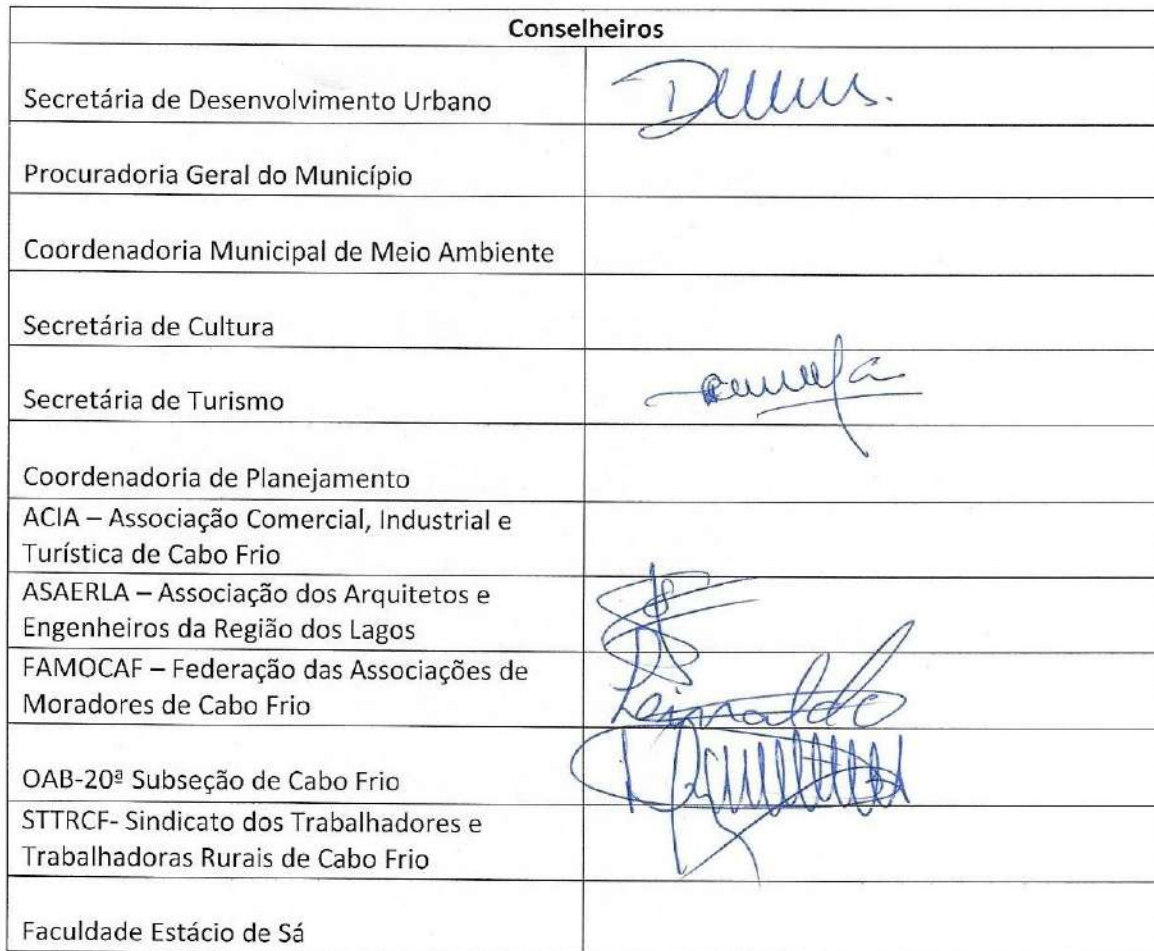 Conselheiros
Secretária de Desenvolvimento Urbano
Procuradoria Geral do Município
Coordenadoria Municipal de Meio Ambiente
Secretária de Cultura
Secretária de Turismo
Coordenadoria de Planejamento
ACIA – Associação Comercial, Industrial e
Turística de Cabo Frio
ASAERLA – Associação dos Arquitetos e
Engenheiros da Região dos Lagos
FAMOCAF – Federação das Associações de
Moradores de Cabo Frio
OAB-20ª Subseção de Cabo Frio
STTRCF- Sindicato dos Trabalhadores e
Trabalhadoras Rurais de Cabo Frio
Faculdade Estácio de Sá